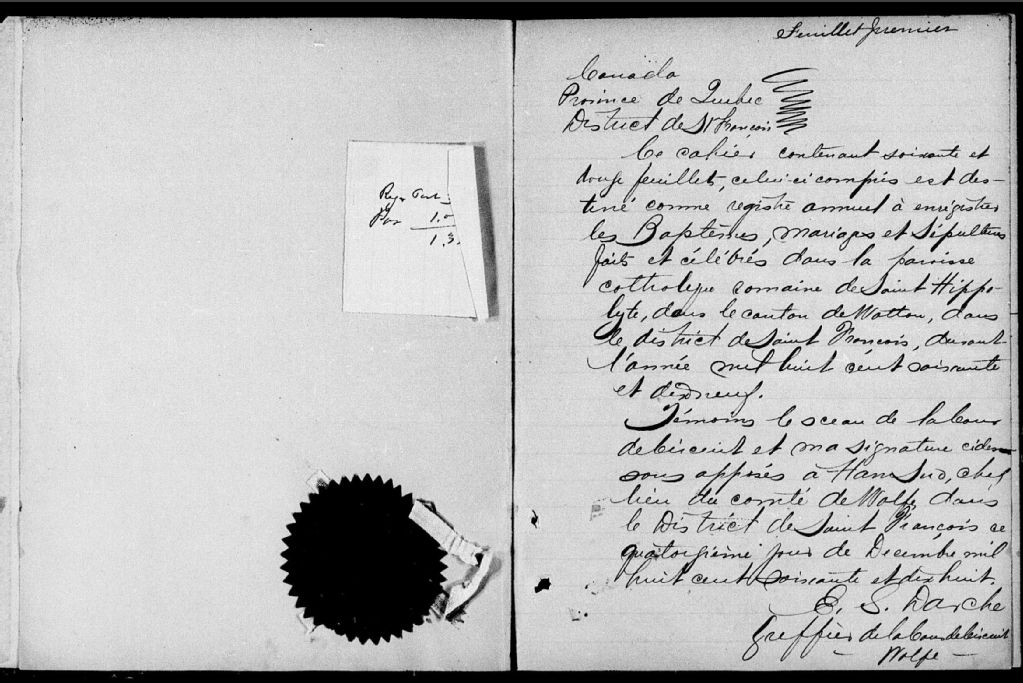 Reg.
Por 1.0
1.3.
Feuillet premier
Canada
Province de Quebec
District de St François
Ce cahier contenant soixante et
douze feuillets, celui-ci compris est des-
tiné comme registre annuel à enrégistrer
les Baptêmes, mariages et Sépultures
faits et célébrés dans la paroisse
catholique romaine de Saint Hippo-
lyte, dans le canton de Wotton, dans
le district de Saint François, durant
l'année mil huit cent soixante
et dix neuf.
Témoins le sceau de la Cour
de Circuit et ma signature ciden
sous apposés à Ham Sud, chef
lieu du comté de Wolfe dans
le District de Saint François ce
quatorzième jour de Decembre mil
huit cent soixante et dix huit.
E. S. Darche
Greffier de la Cour de Circuit
Wolfe